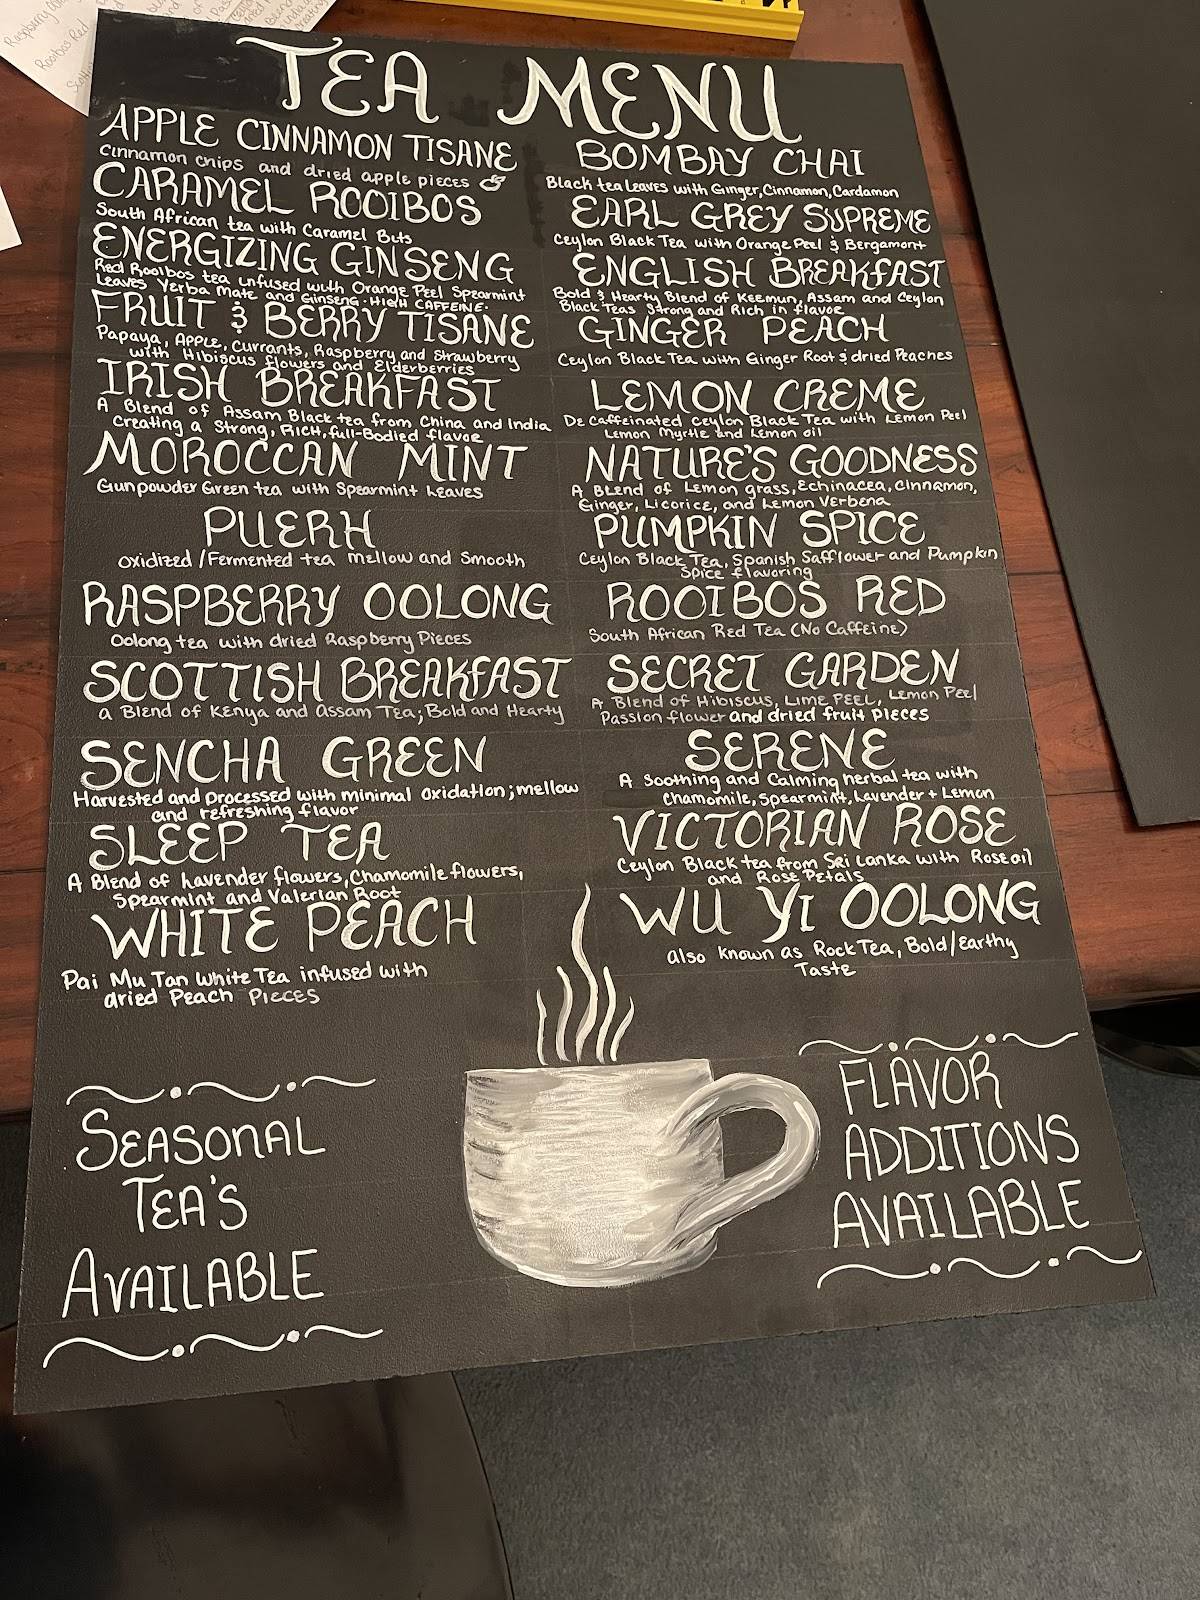 TEA MENU
APPLE CINNAMON TISANE
Cinnamon chips and dried apple pieces
CARAMEL ROOIBOS
South African tea with Caramel Bits
ENERGIZING GINSENG
Red Rooibos tea infused with Orange Peel Spearmint
Leaves Yerba Mate and Ginseng. HIGH CAFFEINE.
FRUIT & BERRY TISANE
Papaya, Apple, Currants, Raspberry and Strawberry
with Hibiscus flowers and Elderberries
IRISH BREAKFAST
A Blend of Assam Black tea from China and India
Creating a Strong, Rich, full-Bodied flavor
MOROCCAN MINT
Gunpowder Green tea with Spearmint Leaves
PUERH
Oxidized/Fermented tea mellow and Smooth
RASPBERRY OOLONG
Oolong tea with dried Raspberry Pieces
SCOTTISH BREAKFAST
a Blend of Kenya and Assam Tea; Bold and Hearty
SENCHA GREEN
Harvested and processed with minimal oxidation; mellow
and refreshing flavor
SLEEP TEA
A Blend of Lavender flowers, Chamomile flowers,
Spearmint and Valerian Root
WHITE PEACH
Pai Mu Tan White Tea infused with
dried Peach Pieces
BOMBAY CHAI
Black tea Leaves with Ginger, Cinnamon, Cardamon
EARL GREY SUPREME
Ceylon Black Tea with Orange Peel & Bergamont
ENGLISH BREAKFAST
Bold & Hearty Blend of Keemun, Assam and Ceylon
Black Teas Strong and Rich in flavor
GINGER PEACH
Ceylon Black Tea with Ginger Root & dried Peaches
LEMON CREME
Decaffeinated Ceylon Black Tea with Lemon Peel
Lemon Myrtle and Lemon oil
NATURE'S GOODNESS
A Blend of Lemon grass, Echinacea, Cinnamon,
Ginger, Licorice, and Lemon Verbena
PUMPKIN SPICE
Ceylon Black Tea, Spanish Safflower and Pumpkin
Spice flavoring
ROOIBOS RED
South African Red Tea (No Caffeine)
SECRET GARDEN
A Blend of Hibiscus, LIME PEEL, Lemon Peel
Passion flower and dried fruit pieces
SERENE
A Soothing and Calming herbal tea with
Chamomile, Spearmint, Lavender + Lemon
VICTORIAN ROSE
Ceylon Black tea from Sri Lanka with Rose oil
and Rose Petals
WU YI OOLONG
also known as Rock Tea, Bold/Earthy
Taste
SEASONAL
TEA'S
AVAILABLE
FLAVOR
ADDITIONS
AVAILABLE
Raspberry
Rooibos Red